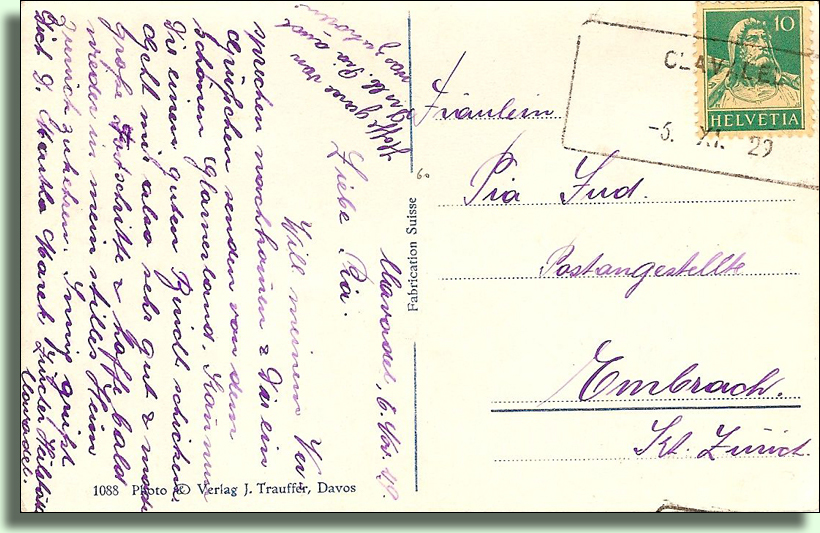 Clavadel, 6. Nov. 29.
Liebe Pia.
Will meinem Ver-
sprechen nachkommen & Dir ein
Grüsschen senden von dem
schönen Glarnerland. Kann nun
Die einen guten Bericht schicken.
Geht mir also sehr gut & mache
Große Fortschritte & hoffe bald
wieder in mein stilles Heim
zurück zukehren. Innig grüsst
Dich D. Martha Zürcher Heilstätte
Clavadel.
Hoffe gerne von
Dir auch
Fräulein
Pia
Postangestellte
Embrach.
Kt. Zürich.
10
HELVETIA
CLAVADEL
-6. XI. 29
Fabrication Suisse
1088 Photo © Verlag J. Trauffer, Davos